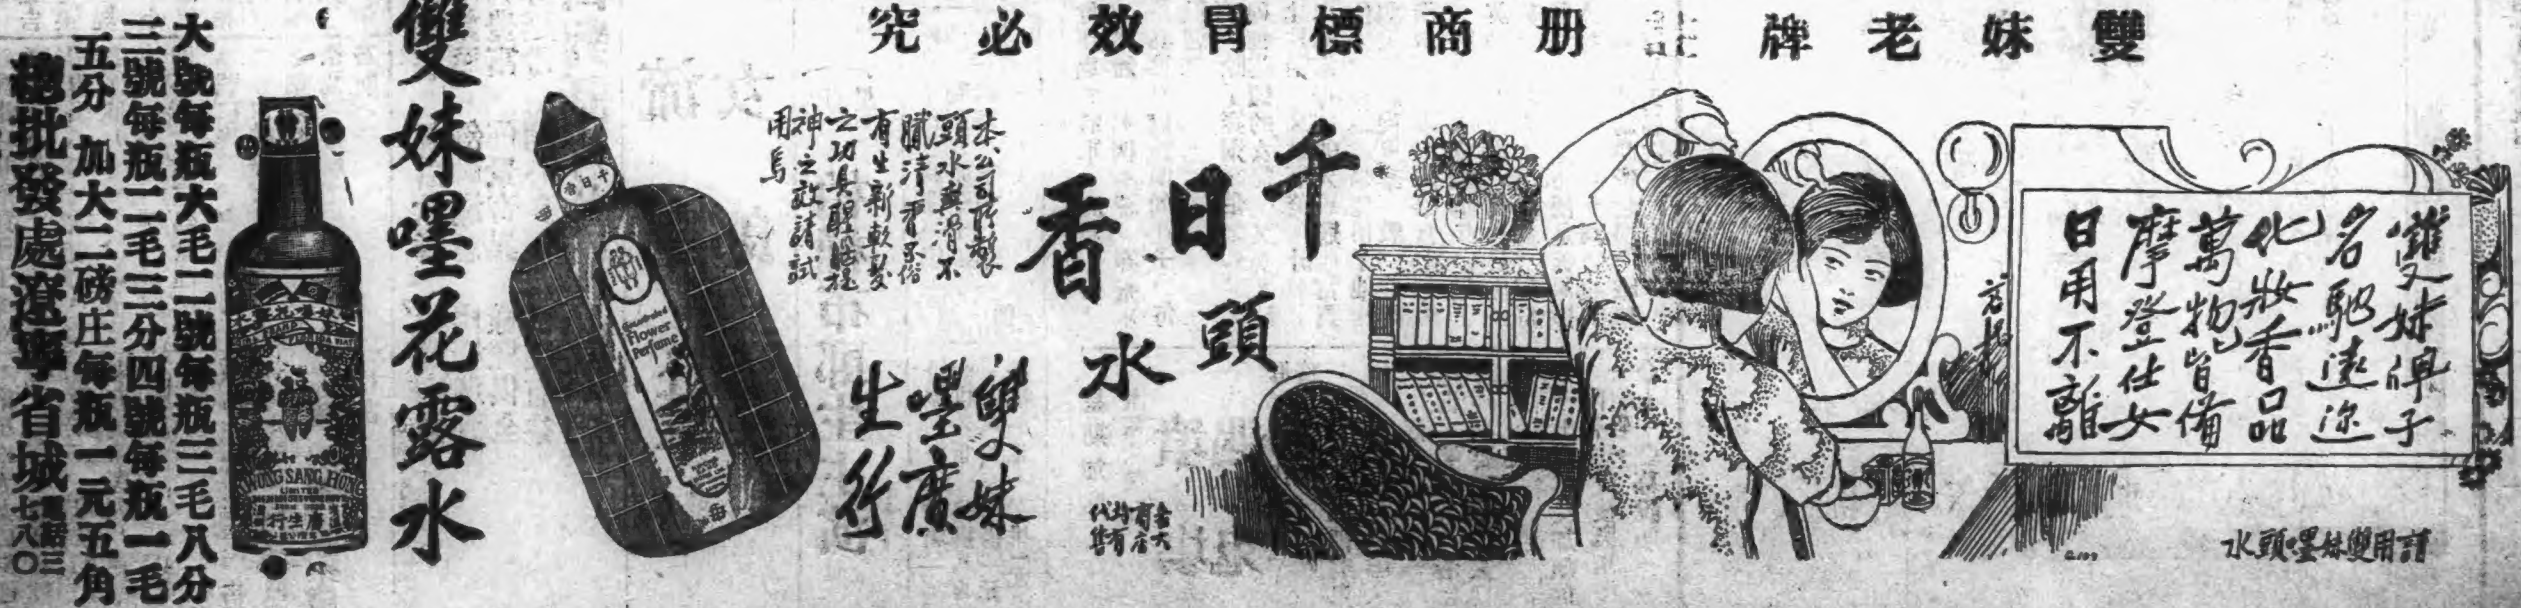 雙妹老牌註册商標冒效必究
雙妹牌子
名馳遠迩
化妝香品
萬物皆備
摩登仕女
日用不離
請用雙妹嚜頭水
千日香
頭水
各大
商店
均有
代售
本公司所製
頭水與滑不
膩清香不俗
有生新軟髮
之功具醒腦提
神之效請試
用焉
雙妹
嚜廣
生行
千日香
Concentrated
Flower
Perfume
雙妹嚜花露水
KWONG SANG HONG
LIMITED
廣生行
大號每瓶大毛二號每瓶三毛八分
三號每瓶二毛三分四號每瓶一毛
五分 加大二磅庄每瓶一元五角
總批發處遼寧省城電話三七八〇